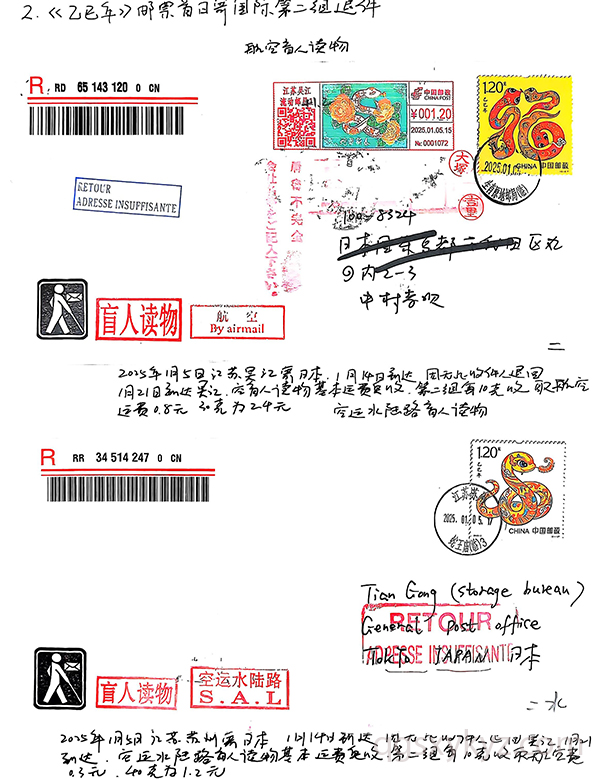 2.《乙巳年》邮票首日寄国际第二组退件
航空盲人读物
R RD 65 143 120 0 CN
江苏吴江
流动邮局
中国邮政
CHINA POST
¥001.20
2025.01.05.15
№ 0001072
1.20元
乙巳年
CHINA 中国邮政
2025.01.0
大塚
RETOUR
ADRESSE INSUFFISANTE
100-8324
日本国东京都千代田区丸
内2-3
盲人读物
航 空
By airmail
二
2025年1月5日江苏吴江寄日本,1月14日到达,因无此收件人退回
1月21日到达吴江.盲人读物基本运费免收.第二组每10克收取航空
运费0.8元 30克为2.4元
空运水陆路盲人读物
R RR 34 514 247 0 CN
1.20元
乙巳年
CHINA 中国邮政
江苏
2025.01.05.17
蛇王庙(临)3
Tian Gong (storage bureau)
General post office
RETOUR
ADRESSE INSUFFISANTE
TOKTO JAPAN 日本
盲人读物
空运水陆路
S.A.L
二水
2025年1月5日江苏苏州寄日本 1月14日到达
到达. 空运水陆路盲人读物基本运费免收 第二组每10克收取航空费
0.3元. 40克为1.2元